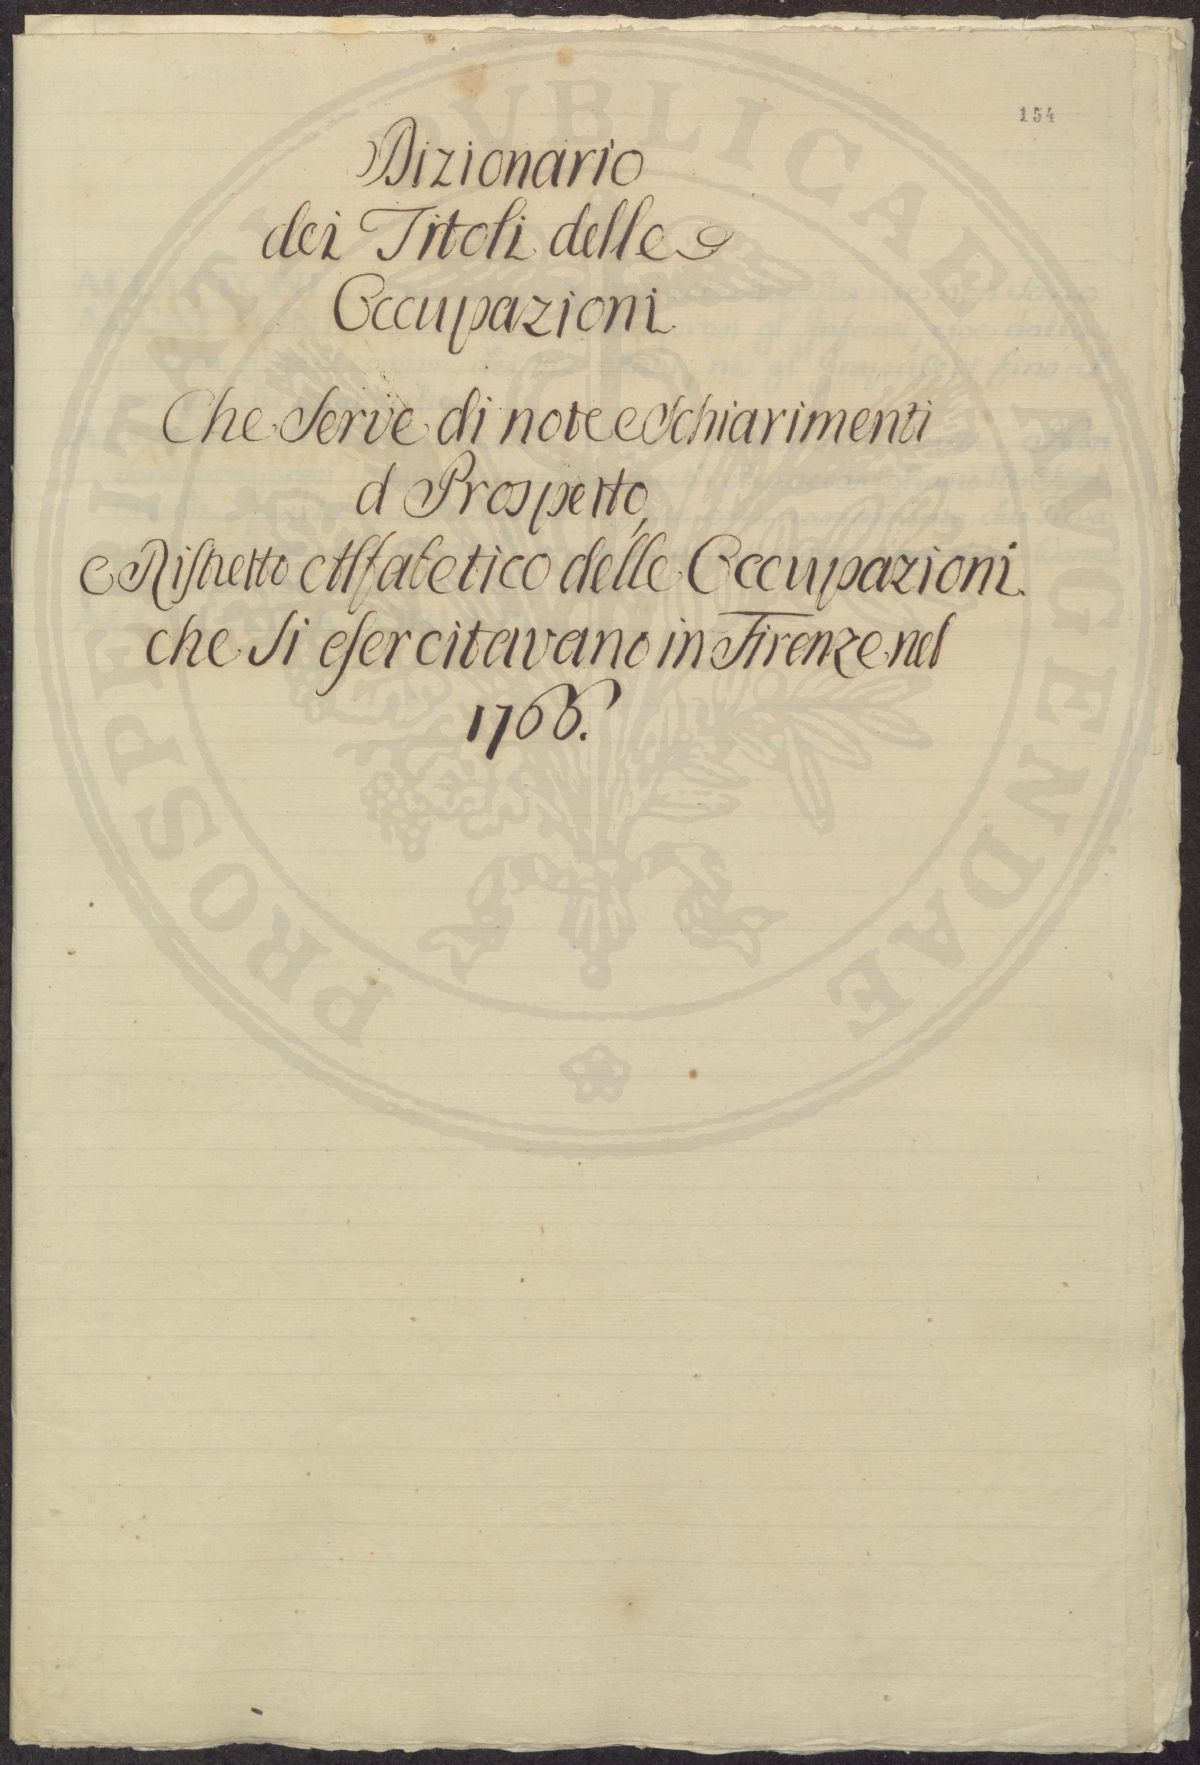 154
Dizionario
dei Titoli delle
Occupazioni
Che Serve di note e Schiarimenti
al Prospetto,
e Ristretto Alfabetico delle Occupazioni
che si esercitavano in Firenze nel
1766.
PROSPERITATI PUBLICAE AUGENDAE